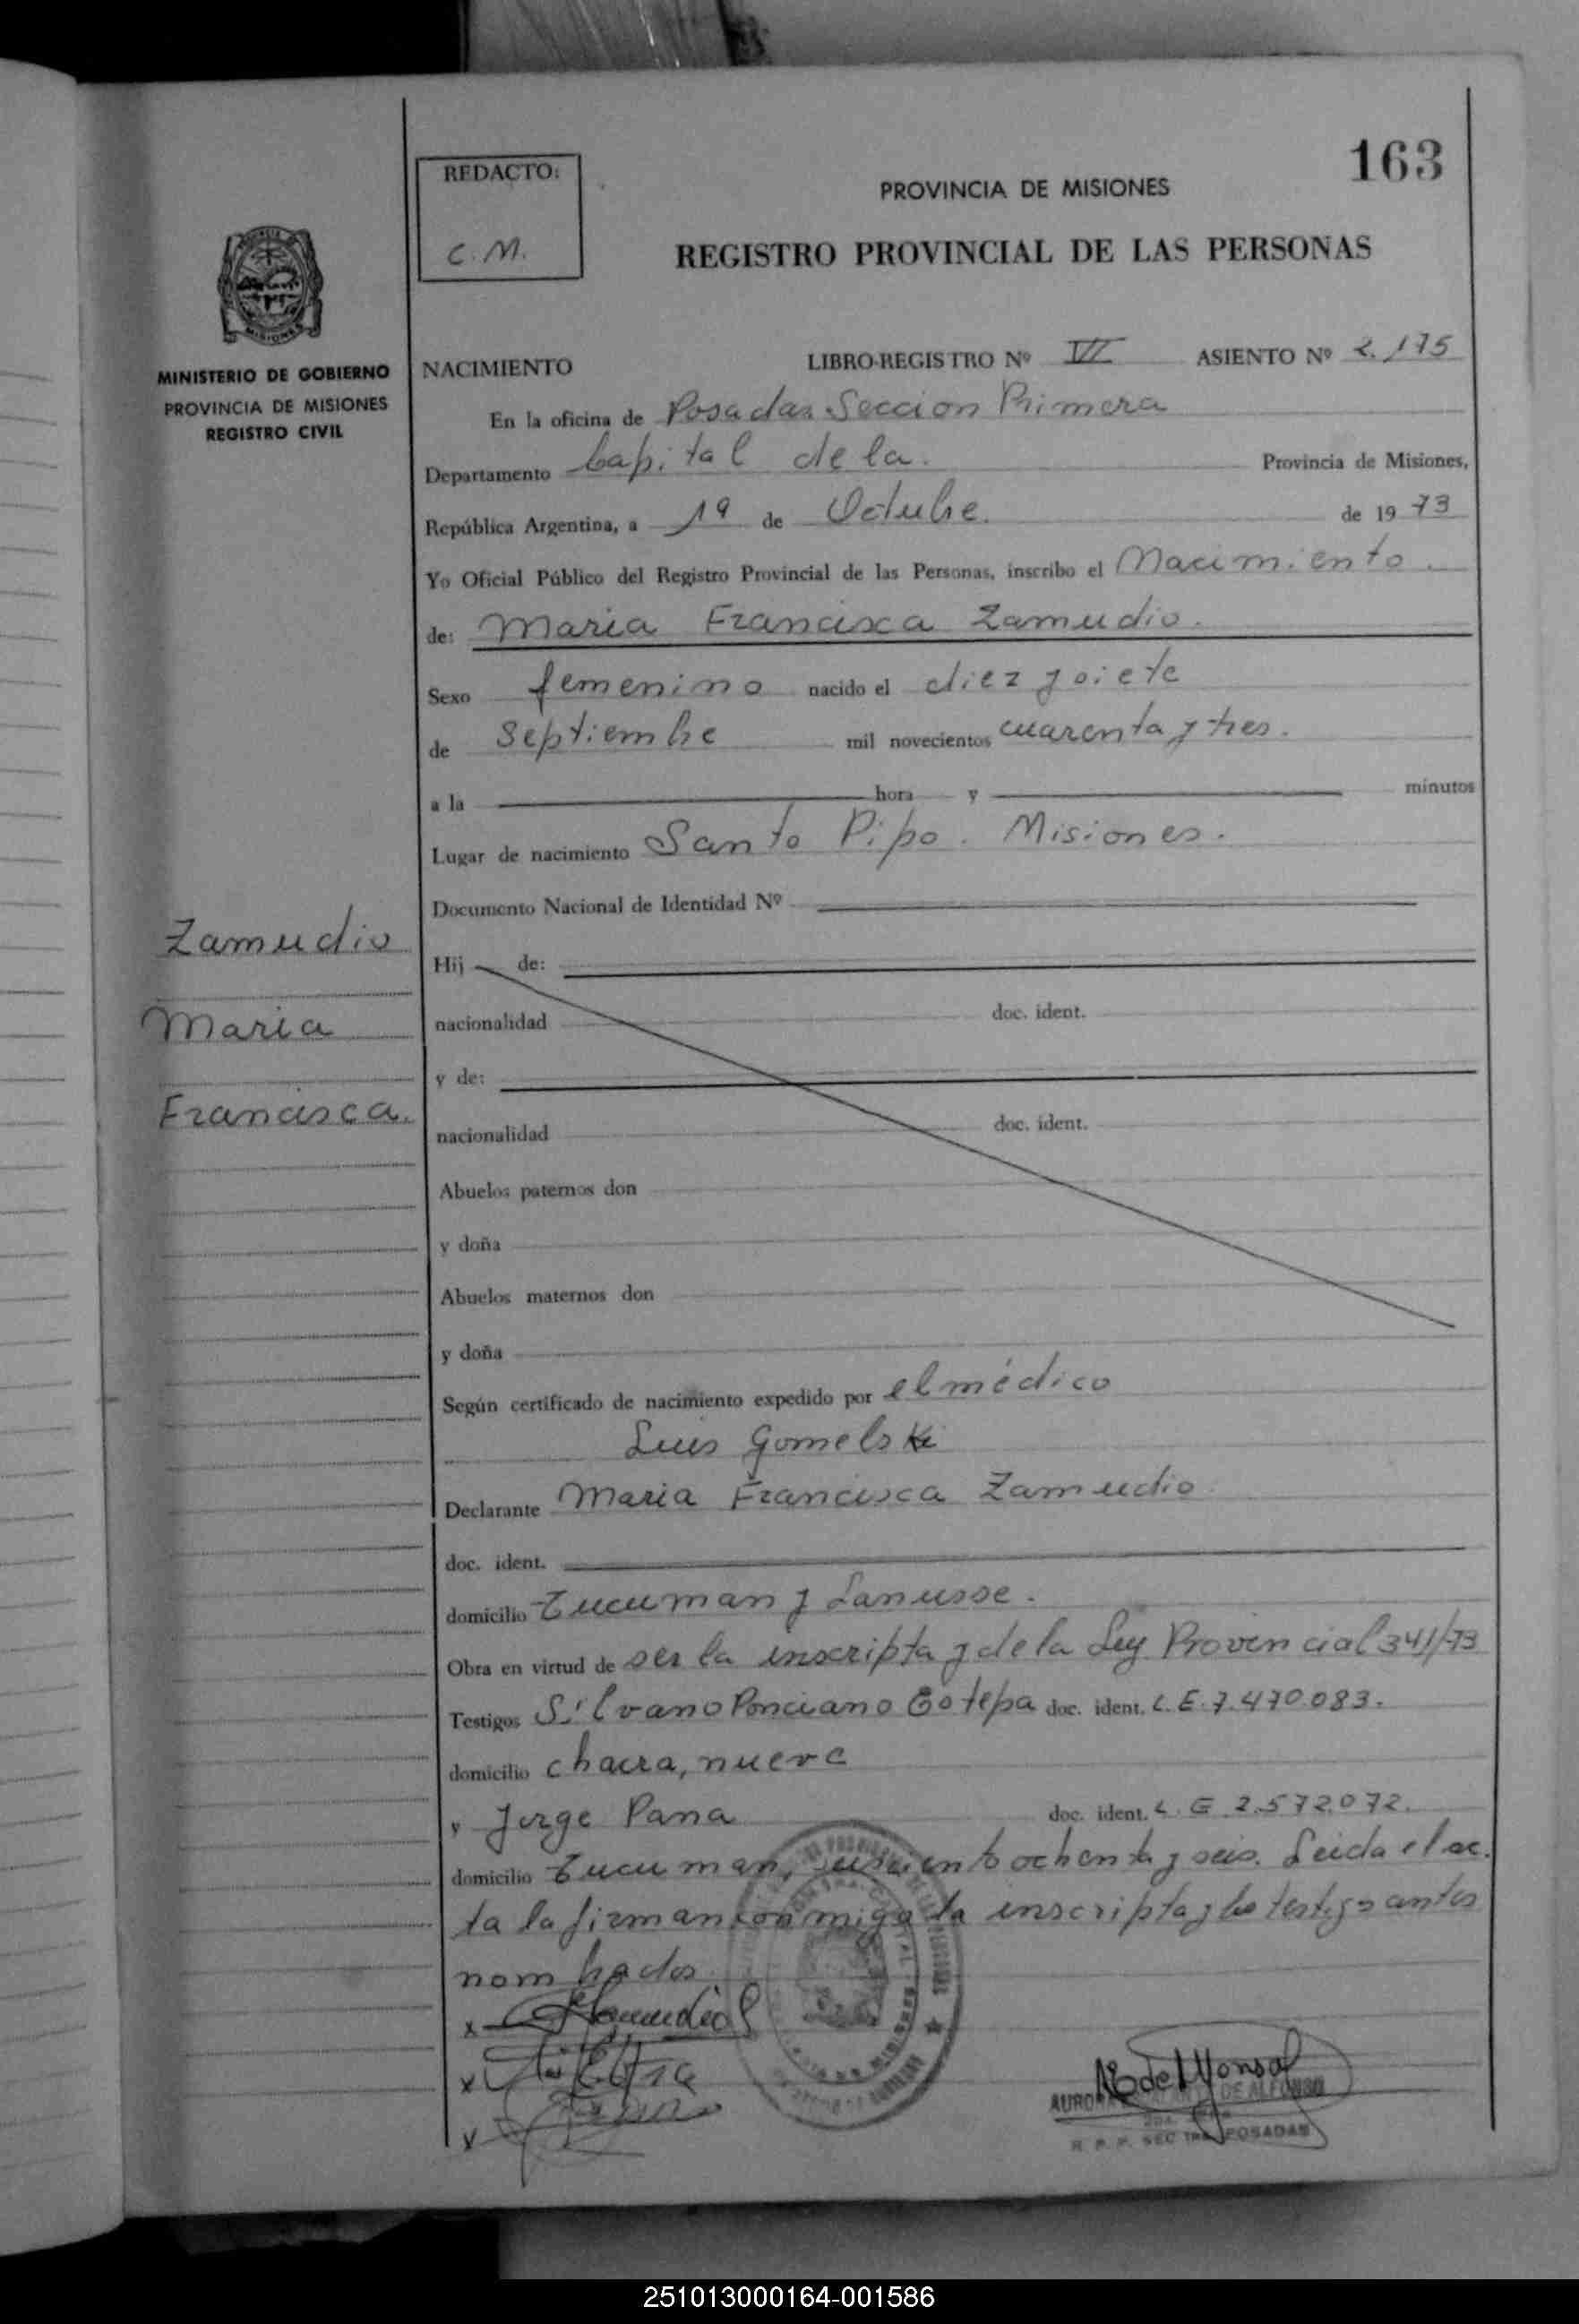 163
REDACTO:
C. M.
PROVINCIA DE MISIONES
REGISTRO PROVINCIAL DE LAS PERSONAS
MINISTERIO DE GOBIERNO
PROVINCIA DE MISIONES
REGISTRO CIVIL
NACIMIENTO LIBRO-REGISTRO Nº VI ASIENTO Nº 2.175
En la oficina de Posadas Seccion Primera
Departamento Capital de la. Provincia de Misiones,
República Argentina, a 19 de Octubre. de 19 73
Yo Oficial Público del Registro Provincial de las Personas, inscribo el Nacimiento.
de: Maria Francisca Zamudio.
Sexo femenino nacido el diez y siete
de Septiembre mil novecientos cuarenta y tres.
a la hora y minutos
Lugar de nacimiento Santo Pipo. Misiones.
Documento Nacional de Identidad Nº
Zamudio
Maria
Francisca.
Hij de:
nacionalidad doc. ident.
y de:
nacionalidad doc. ident.
Abuelos paternos don
y doña
Abuelos maternos don
y doña
Según certificado de nacimiento expedido por el médico
Luis Gomelski
Declarante Maria Francisca Zamudio
doc. ident.
domicilio Tucuman y Lanusse.
Obra en virtud de ser la inscripta y de la Ley Provincial 341/73
Testigos Silvano Ponciano doc. ident. L.E. 7.470.083.
domicilio chacra, nueve
y Jorge Pana doc. ident. L. E 2.572.072.
domicilio Tucuman, ochenta y seis. Leida el ac.
ta la firman conmigo la inscripta y los testigos antes
nombrados
x
x
x
R. P. P. SEC 1ra. POSADAS
251013000164-001586